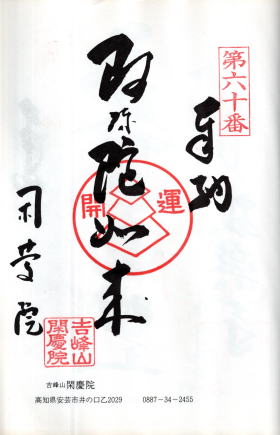 第六十番
奉納
開運
阿弥陀如来
閑慶院
吉峰山
閑慶院
吉峰山 閑慶院
高知県安芸市井の口乙2029 0887-34-2455